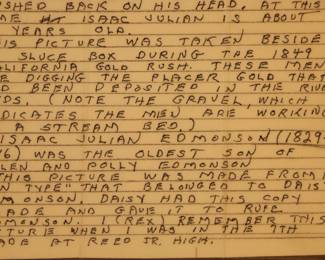 SHED BACK ON HIS HEAD. AT THIS
ME ISAAC JULIAN IS ABOUT
YEARS OLD.
IS PICTURE WAS TAKEN BESIDE
SLUICE BOX DURING THE 1849
ALIFORNIA GOLD RUSH. THESE MEN
E DIGGING THE PLACER GOLD THAT
D BEEN DEPOSITED IN THE RIVE
DS. (NOTE THE GRAVEL, WHICH
DICATES THE MEN ARE WORKIN
A STREAM BED.)
ISAAC JULIAN EDMONSON (1829
6) WAS THE OLDEST SON OF
LEN AND POLLY EDMONSON
THIS PICTURE WAS MADE FROM
N TYPE" THAT BELONGED TO DAIS
MONSON. DAISY HAD THIS COPY
ADE AND GAVE IT TO RUFE
MONSON. I (REX) REMEMBER THIS
CTURE WHEN I WAS IN THE 9TH
ADE AT REED JR. HIGH.